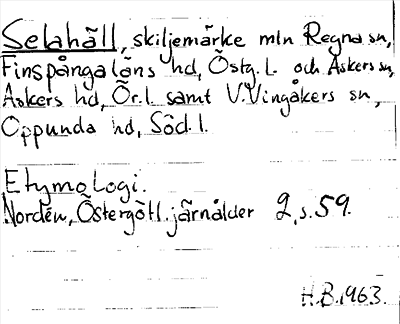 Selahäll, skiljemärke mln Regna sn,
Finspånga läns hd, Östg.l. och Askers sn,
Askers hd, Ör.l. samt V. Vingåkers sn,
Oppunda hd, Söd.l.
Etymologi.
Nordén, Östergötl. järnålder 2, s. 59.
H.B. 1963.